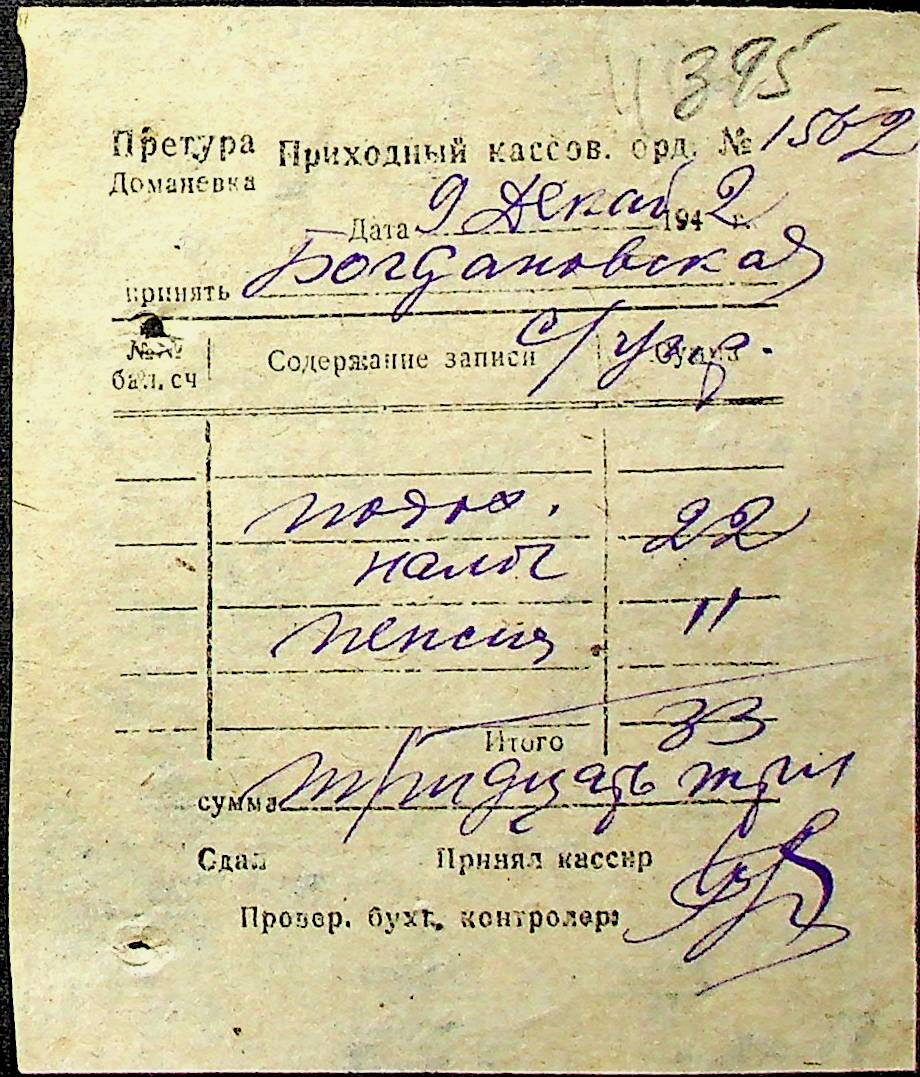 395
Претура Приходный кассов. орд. № 1562
Доманевка
Дата 9 Декаб 1942 г.
принять Богдановская
с/упр.
№№ бал. сч Содержание записи Сумма
подох.
налог 22
пенсия 11
Итого 33
сумма тридцать три
Сдал Принял кассир
Провер. бухг. контролер: